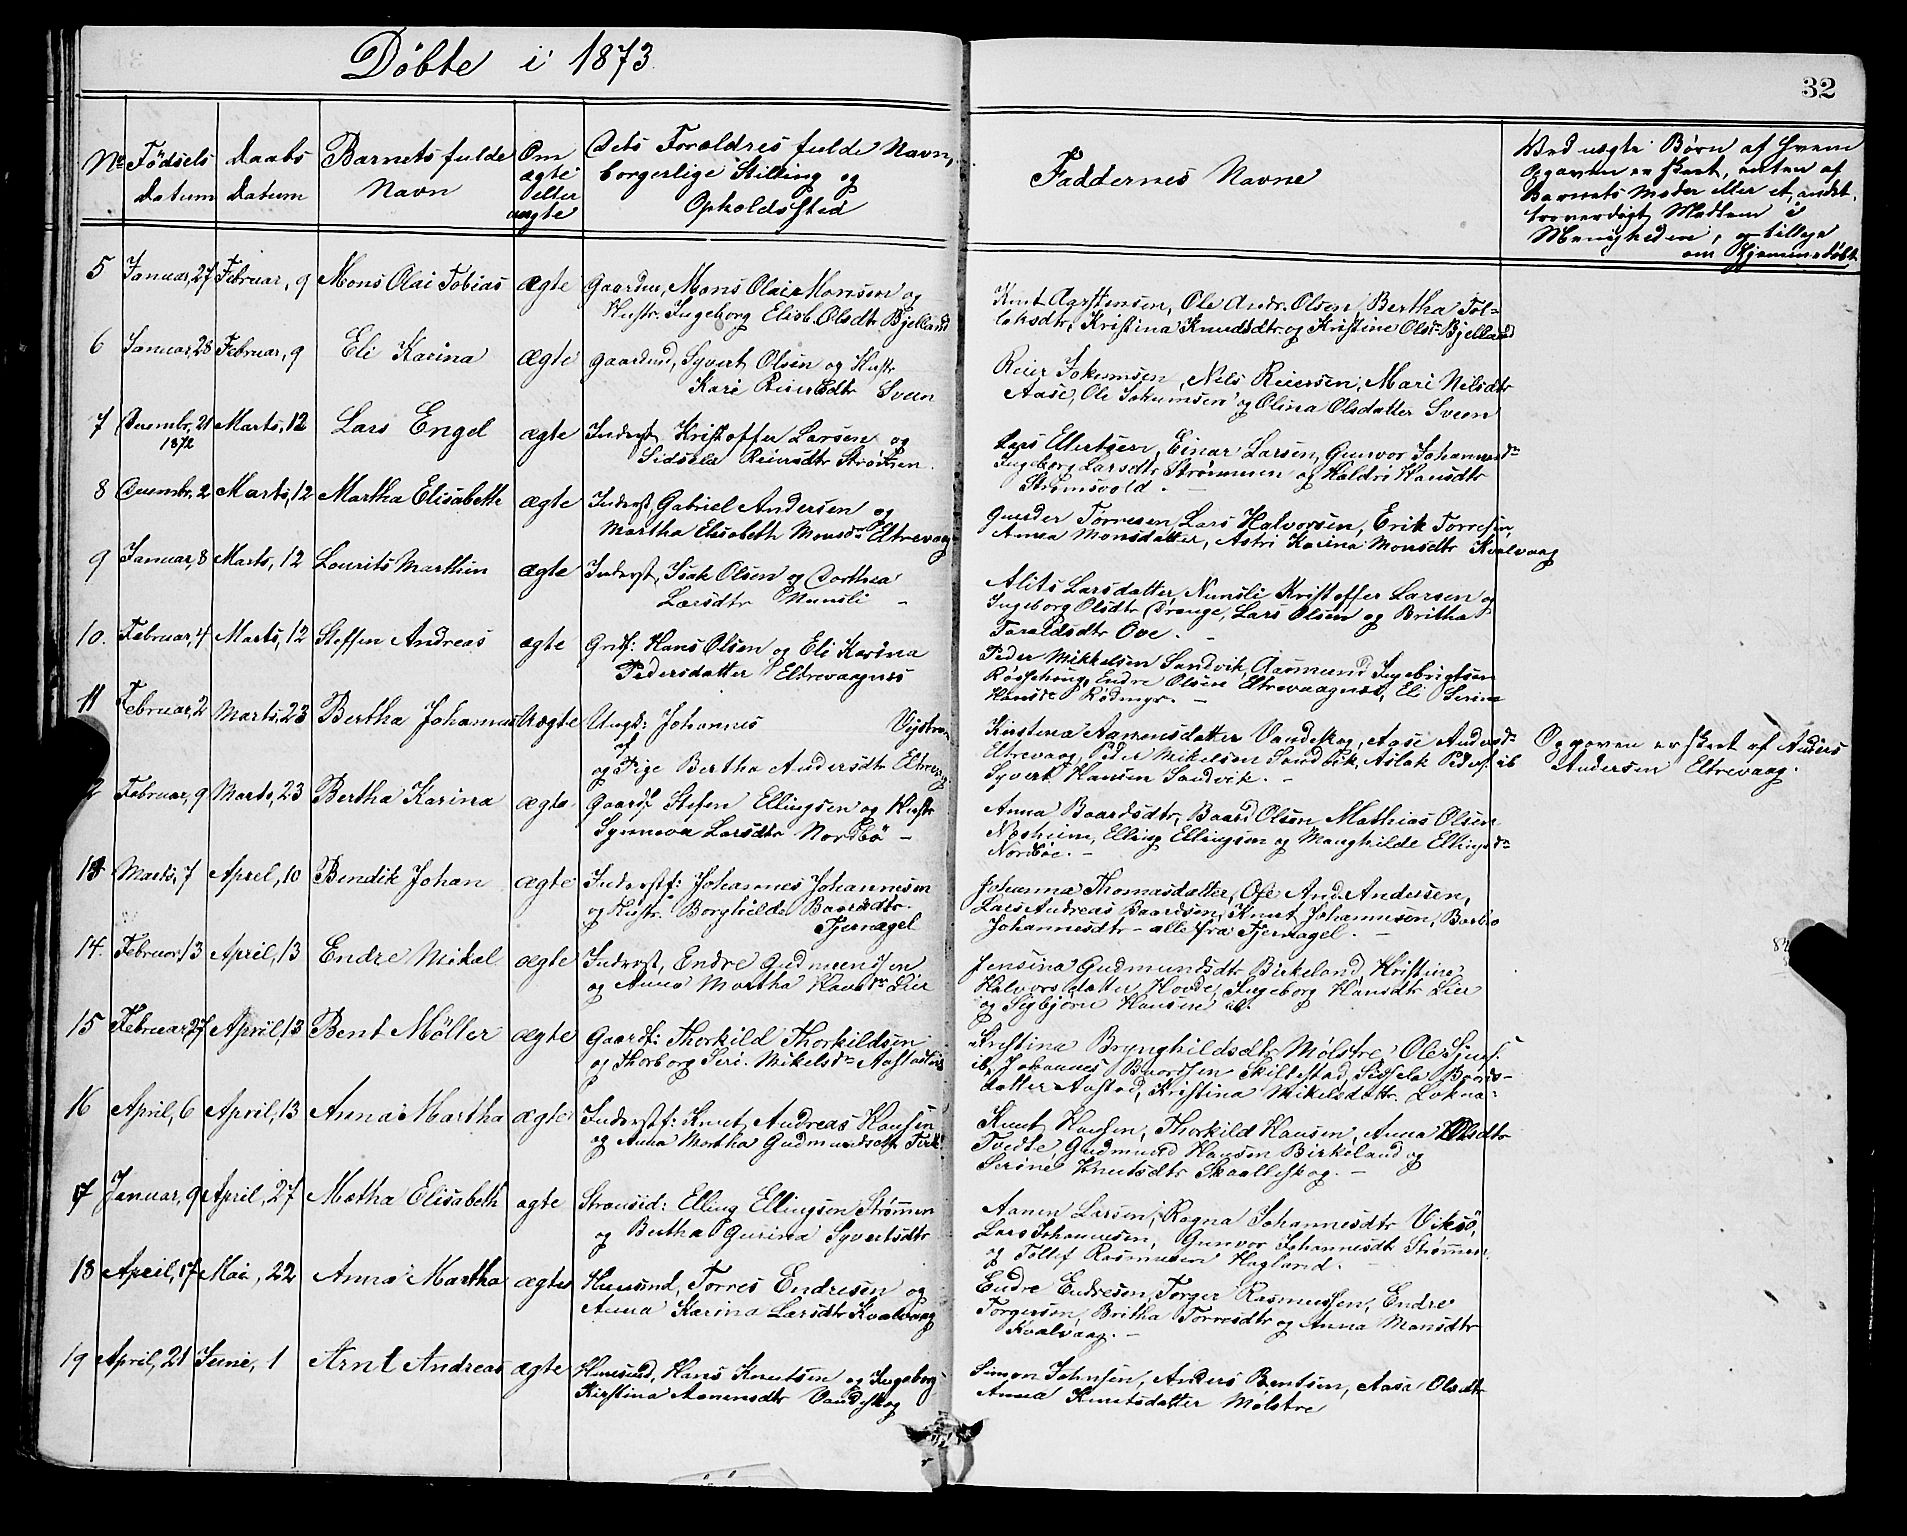 Döbte i 1873
32
No Födsels Datum
Daabs Datum
Barnets fulde Navn
Om ægte eller uægte
Dets Forældres fulde Navn, borgerlige Stilling og Opholdssted
Faddernes Navne
Ved uægte Børn af hvem
Opgaven er skeet, enten af
Barnets Moder eller et andet
troværdigt Medlem i
Menigheden, og tillige
om Hjemmedöbt
5 Januar, 27 Februar, 9 Mons Olai Tobias ægte Gaardm, Mons Olai Monsen og
Hustr. Ingeborg Elisb. Olsdtr Bjelland
Knut Ole Andr. Olsen, Bertha Tol-
laksdtr, Kristina Knudsdtr og Kristine Olsdr Bjelland
6 Januar, 28 Februar, 9 Eli Karina ægte gaardmd, Syvert Olsen og Hustr
Kari Reiersdtr Sveen
Reier Jokumsen, Nils Reiersen, Mari Nilsdtr
Aase, Ole Jokumsen og Olina Olsdatter Sveen
7 Decembr, 21 1872 Marts, 12 Lars Engel ægte Inderst, Kristoffer Larsen og
Sidsela Reiersdtr
Lars Ellertsen, Einar Larsen, Gunvor Johannesdr
Ingeborg Larsdtr Strømmen og Haldri Hansdtr
Strømsvold.
8 Decembr, 2 Marts, 12 Martha Elisabethe ægte Inderst, Gabriel Andersen og
Martha Elisabeth Monsdr Eltrevaag
Torresen, Lars Halvorsen, Erik Torresen,
Anna Monsdatter, Astri Karina Monsdtr Kvalvaag
9 Januar, 8 Marts, 12 Laurits Marthin ægte Inderst, Isak Olsen og Dorthea
Larsdtr Nunsli -
Alits Larsdatter, Nunsli Kristoffer Larsen og
Ingeborg Olsdtr Drange, Lars Olsen og Britha
Taraldsdtr Ove. -
10. Februar, 4 Marts, 12 Steffen Andreas ægte Grdf: Hans Olsen og Eli Karina
Pedersdatter Eltrevaagnes
Peder Mikkelsen Sandvik, Aasmund Ingebrigtsen
Endre Olsen Eltrevaagnes, Eli Serina
Hansdr Rödmyr. -
11 Februar, 2 Marts, 23 Bertha Johannes Uægte Ungk: Johannes
og Pige Bertha Andersdtr Eltrevaag
Kirstina Aamensdatter Vandskog, Aase Andersdr
Eltrevaag, Peder Mikelsen Sandvik, Aslak Peders. ib
Syvert Hansen Sandvik. -
Opgaven er skeet af Anders
Andersen Eltrevaag.
Februar, 9 Marts, 23 Bertha Karina ægte Gaardf Stefen Ellingsen og Hustr
Synneva Larsdtr Nordbö -
Anna Baardsdtr, Baard Olsen Mathias Olsen
Nesheim, Elling Ellingsen og Manghilde Ellingsdr
Nordböe. -
13 Marts, 7 April, 10 Bendik Johan ægte Inderstf: Johannes Johannesen
og Hustr. Borghilde Baardsdtr.
Tjernagel
Johanna Thomasdatter, Ole And. Andersen,
Lars Andreas Baardsen, Knut Johannesen, Barbro
Johannesdtr - alle fra Tjernagel. -
14. Februar, 13 April, 13 Endre Mikal ægte Inderst, Endre Gudmundsen
og Anna Martha Hansdr Lier
Jensina Gudmundsdtr Birkeland, Kristine
Halvorsdatter Hovde, Ingeborg Hansdtr Lier
og Sigbjørn Hansen ib.
15 Februar, 27 April, 13 Bent Möller ægte Gaardf: Thorkild Thorkildsen
og Thorborg Seri. Mikelsdr
Kristina Brynghildsdtr Mølstre, Ole
ib, Johannes Baardsen Skillestad, Sidsela Baards-
datter Aastad, Kristina Mikelsdatter. Lokna-
16 April, 6 April, 13 Anna Martha ægte Inderstf: Knut Andreas Hansen
og Anna Martha Gudmundsdtr
Knut Hansen, Thorkild Hansen, Anna Olsdtr
Tvedte, Gudmund Hansen Birkeland og
Serine Knutsdtr Skaalleskog. -
17 Januar, 9 April, 27 Matha Elisabeth ægte Strandsid: Elling Ellingsen Strømmen
og Bertha Gurina Syvertsdtr
Aamen Larsen, Ragna Johannesdtr Viksö,
Lars Johannesen, Gunvor Johannesdt Strømmen.
og Tollef Rasmusen Hagland. -
18 April, 17 Mai, 22 Anna Martha ægte Huusmd, Torres Endresen og
Anna Karina Larsdtr Kvalvaag
Endre Endresen, Torger Rasmussen, Endre
Torgersen, Britha Torresdtr og Anna Monsdtr
Kvalvaag. -
19 April, 21 Juni, 1 Arnt Andreas ægte Huusmd, Hans Knutsen og Ingeborg
Kirstina Aamensdtr Vandskog
Simon Johnsen, Anders Bentsen, Aase Olsdtr
Anna Knutsdatter Mølstre